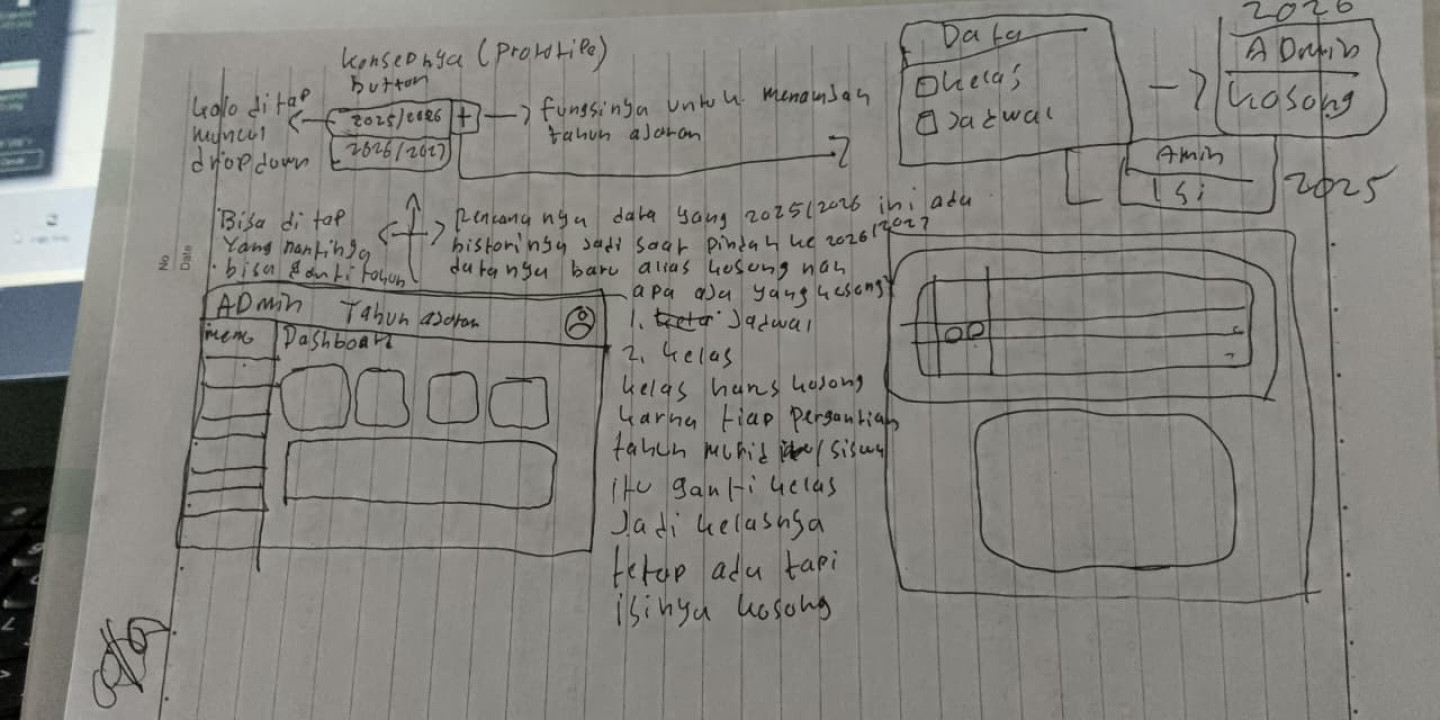 Konsepnya (Prototipe)
button
Kalo di tap
muncul
dropdown
2025/2026 +
2026/2027
fungsinya untuk menambah
tahun ajaran
Data
kelas
Jadwal
2026
ADmin
kosong
Amin
Isi
2025
Bisa di tap
Yang nantinya
bisa ganti tahun
Rencana nya data yang 2025/2026 ini ada
historinya jadi saat pindah ke 2026/2027
datanya baru alias kosong nah
apa aja yang kosong
1. Jadwal
2. kelas
kelas harus kosong
karna tiap pergantian
tahun murid /siswa
itu ganti kelas
Jadi kelasnya
tetap ada tapi
isinya kosong
No
Date
ADmin Tahun ajaran
menu
Dashboard